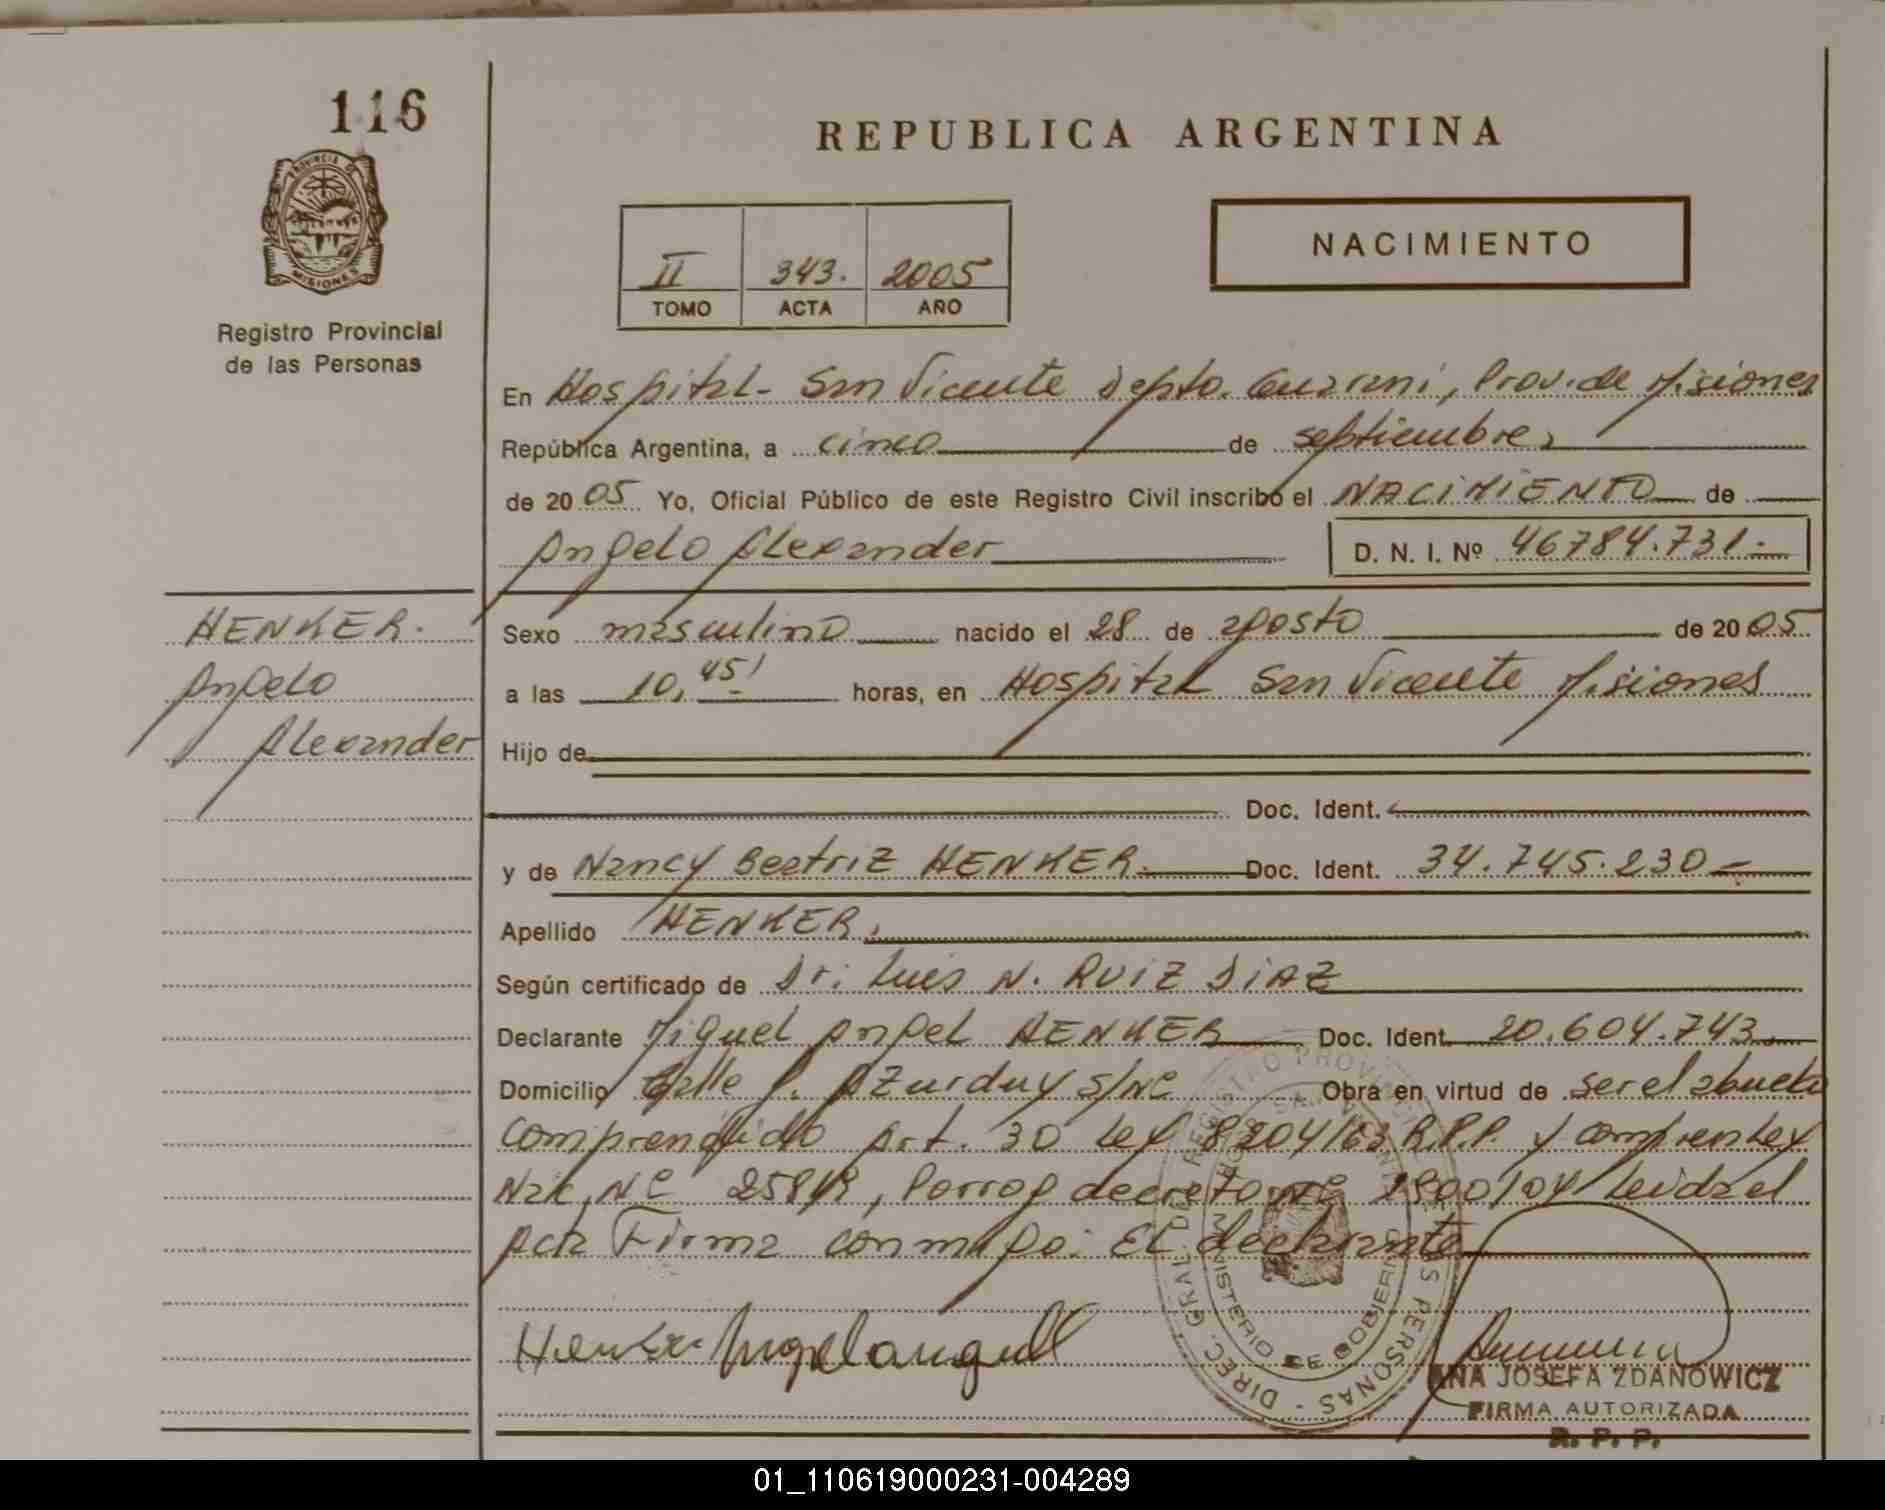 116
REPUBLICA ARGENTINA
PROVINCIA DE
MISIONES
Registro Provincial
de las Personas
II 343. 2005
TOMO ACTA AÑO
NACIMIENTO
En Hospital- San Vicente Depto. Guarani, Prov. de Misiones
República Argentina, a cinco de septiembre,
de 2005 Yo, Oficial Público de este Registro Civil inscribo el NACIMIENTO de
Angelo Alexander D. N. I. Nº 46784.731.-
HENKER.
Angelo
Alexander
Sexo masculino nacido el 28 de agosto de 2005
a las 10,45' horas, en Hospital San Vicente Misiones
Hijo de
Doc. Ident.
y de Nancy Beatriz HENKER.- Doc. Ident. 34.745.230-
Apellido HENKER.
Según certificado de Dr. Luis N. RUIZ DIAZ
Declarante Miguel Angel HENKER Doc. Ident. 20.604.743.
Domicilio Calle J. AZurduy S/Nº Obra en virtud de ser el abuelo
Comprendido Art. 30 Ley 8204/63 R.P.P. y compren Ley
Nac, Nº 25819, Porrog decreto Nº 1900/04 Leida el
Acta Firma conmigo: El declarante
DIREC. GRAL. DE REGISTRO PROVINCIAL DE LAS PERSONAS
MINISTERIO DE GOBIERNO
ANA JOSEFA ZDANOWICZ
FIRMA AUTORIZADA
R. P. P.
01_110619000231-004289